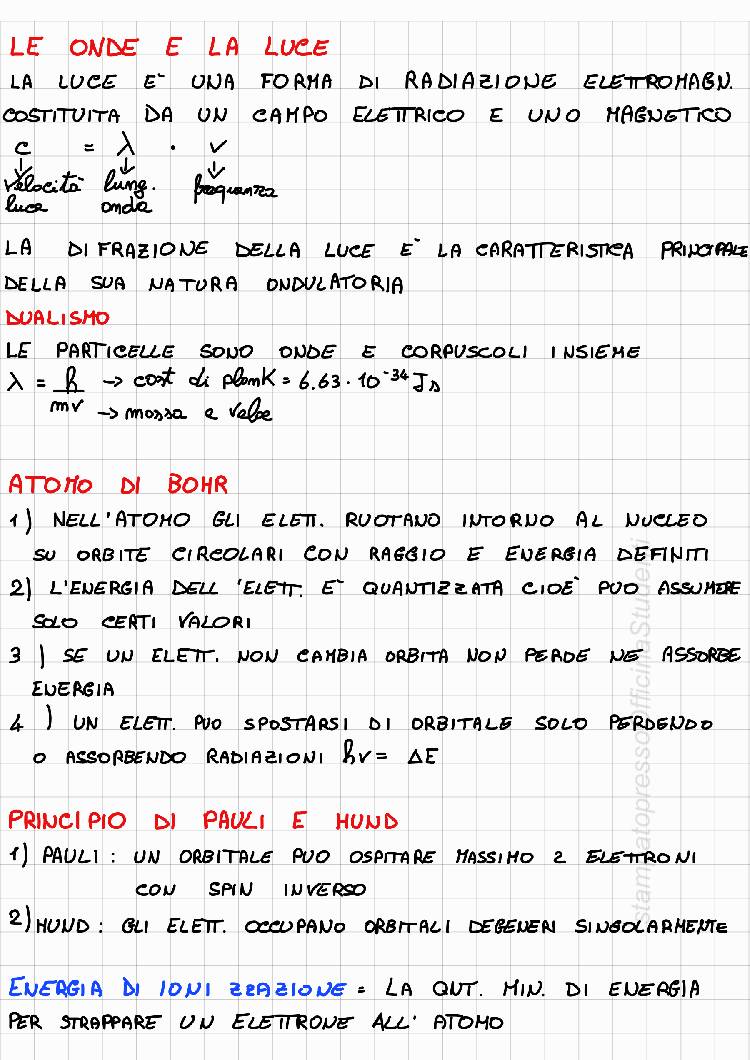 LE ONDE E LA LUCE
LA LUCE E` UNA FORMA DI RADIAZIONE ELETTROMAGN.
COSTITUITA DA UN CAMPO ELETTRICO E UNO MAGNETICO
c = λ · ν
↓ ↓ ↓
velocità lung. frequenza
luce onda
LA DIFRAZIONE DELLA LUCE E` LA CARATTERISTICA PRINCIPALE
DELLA SUA NATURA ONDULATORIA
DUALISMO
LE PARTICELLE SONO ONDE E CORPUSCOLI INSIEME
λ = h → cost di plank = 6.63 · 10⁻³⁴ Js
mv → massa e veloc
ATOMO DI BOHR
1) NELL'ATOMO GLI ELETT. RUOTANO INTORNO AL NUCLEO
SU ORBITE CIRCOLARI CON RAGGIO E ENERGIA DEFINITI
2) L'ENERGIA DELL'ELETT. E` QUANTIZZATA CIOE` PUO ASSUMERE
SOLO CERTI VALORI
3) SE UN ELETT. NON CAMBIA ORBITA NON PERDE NE ASSORBE
ENERGIA
4) UN ELETT. PUO SPOSTARSI DI ORBITALE SOLO PERDENDO
O ASSORBENDO RADIAZIONI hν = ΔE
PRINCIPIO DI PAULI E HUND
1) PAULI : UN ORBITALE PUO OSPITARE MASSIMO 2 ELETTRONI
CON SPIN INVERSO
2) HUND : GLI ELETT. OCCUPANO ORBITALI DEGENERI SINGOLARMENTE
ENERGIA DI IONIZZAZIONE = LA QNT. MIN. DI ENERGIA
PER STRAPPARE UN ELETTRONE ALL'ATOMO
stampatopressoOfficinaStudenti